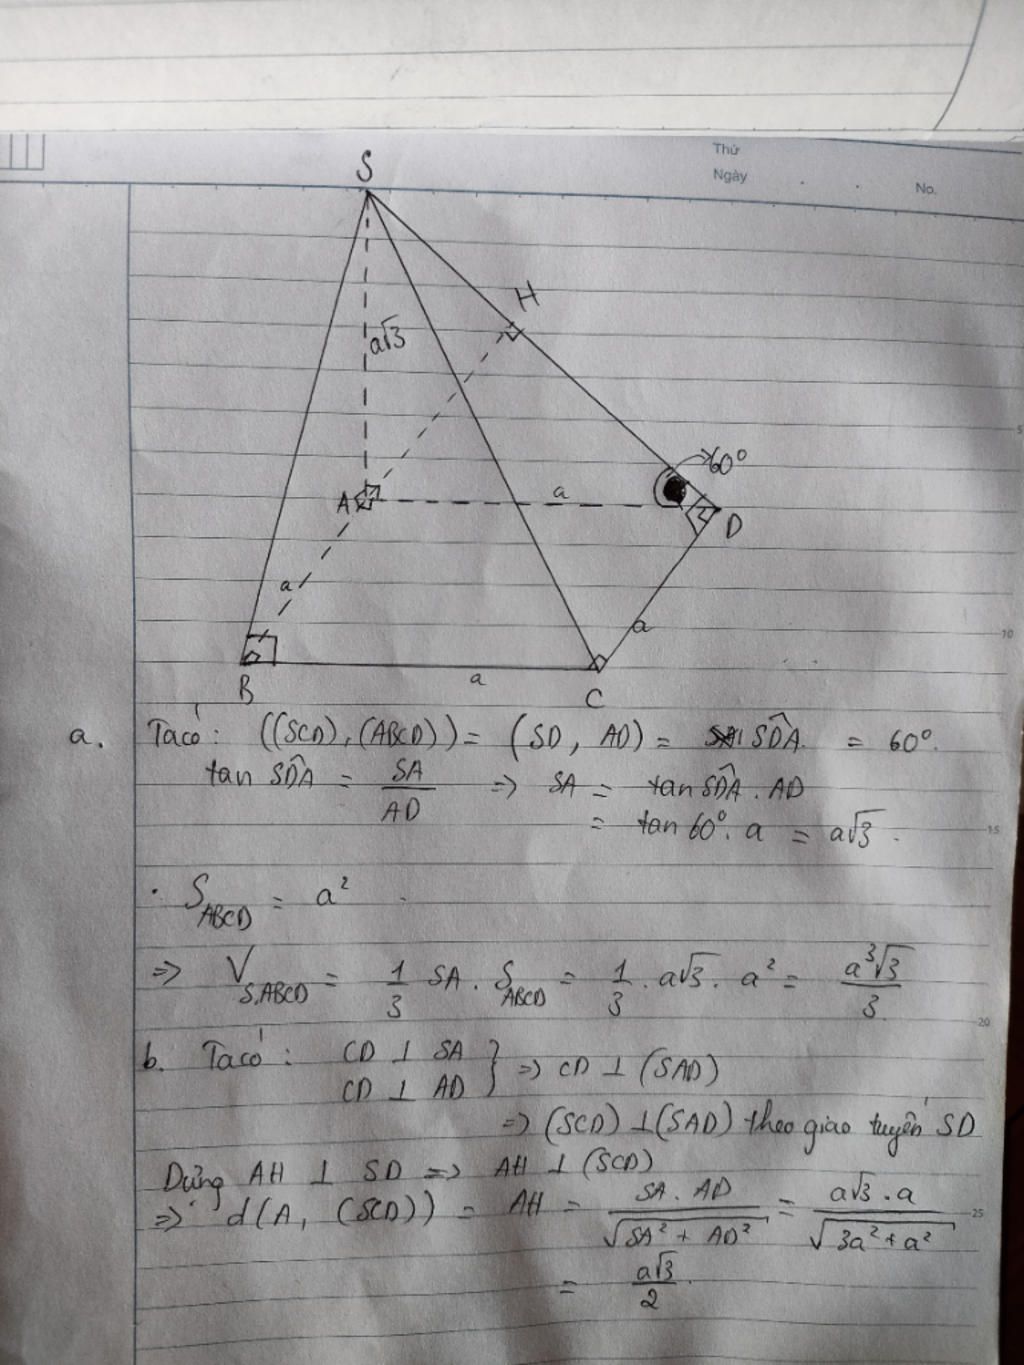 Thứ
Ngày . . No.
S
H
a√3
60°
A
a
D
a
a
B
a
C
5
10
15
20
25
a. Ta có: ((SCD), (ABCD)) = (SD, AD) = SDA^ = 60°.
tan SDA^ = SA/AD => SA = tan SDA^ . AD
= tan 60°. a = a√3.
. S_ABCD = a²
=> V_S.ABCD = 1/3 SA . S_ABCD = 1/3 . a√3 . a² = a³√3/3.
b. Ta có: CD ⊥ SA
CD ⊥ AD } => CD ⊥ (SAD)
=> (SCD) ⊥ (SAD) theo giao tuyến SD
Dựng AH ⊥ SD => AH ⊥ (SCD)
=> d(A, (SCD)) = AH = SA . AD/√(SA² + AD²) = a√3 . a/√(3a² + a²)
= a√3/2.